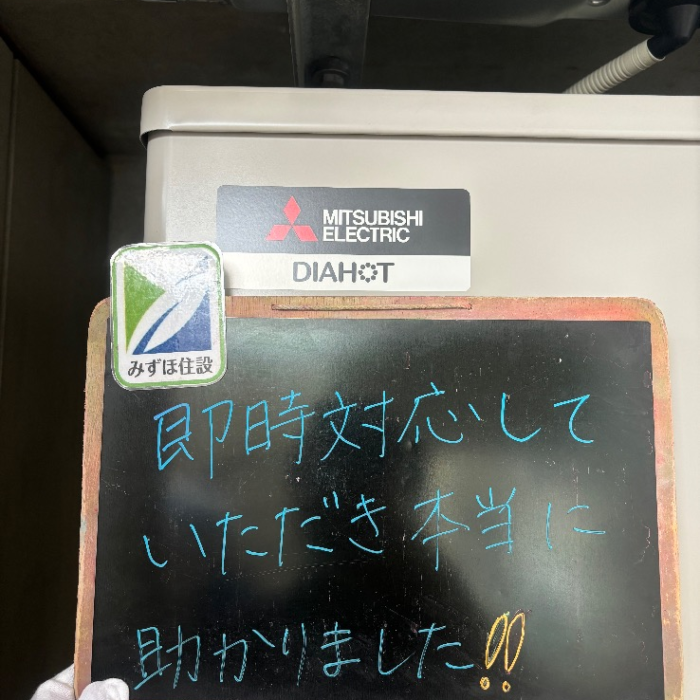 MITSUBISHI
ELECTRIC
DIAHOT
みずほ住設
即時対応して
いただき本当に
助かりました!!